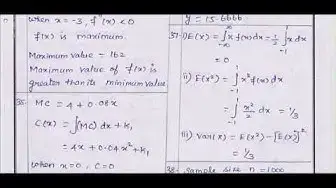 when x = -3, f''(x) < 0
f(x) is maximum.
Maximum value = 162
Maximum value of f(x) is
greater than its minimum value
35. MC = 4 + 0.08x
C(x) = ∫(MC) dx + k₁
= 4x + 0.04x² + k₁
when x = 0, C = 0
y = 15.6666
37. i) E(x) = ∫_{-∞}^{∞} x f(x) dx = 1/2 ∫_{-1}^{1} x dx
= 0
ii) E(x²) = ∫_{-1}^{1} x² f(x) dx
= ∫_{-1}^{1} x²/2 dx = 1/3
iii) Var(x) = E(x²) - [E(x)]²
= 1/3
38. Sample size n = 1000